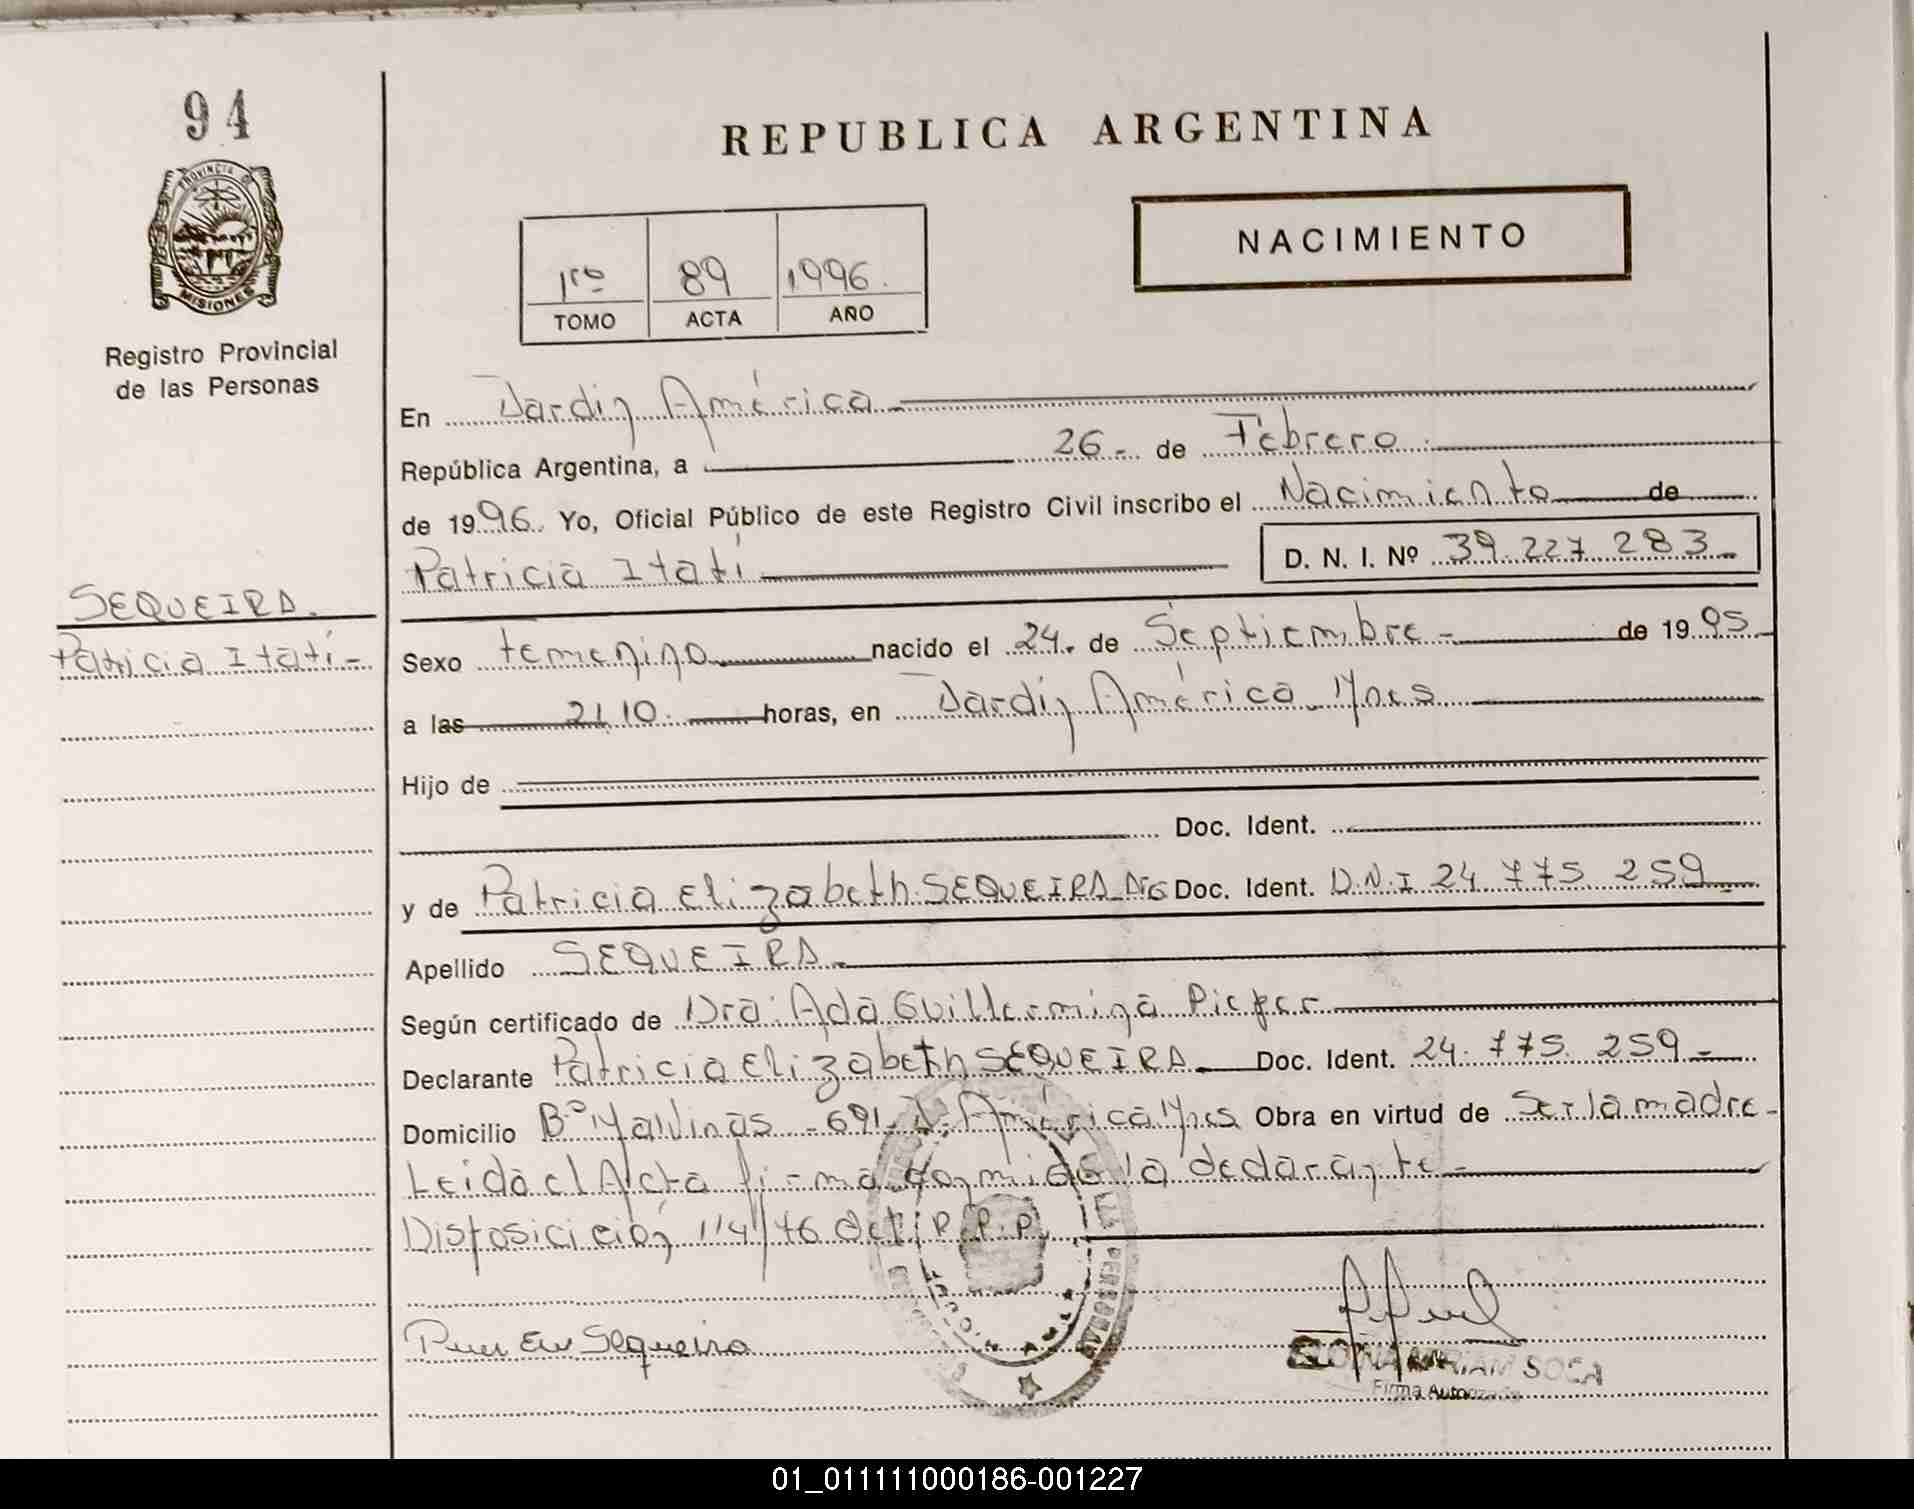 94
PROVINCIA DE
MISIONES
Registro Provincial
de las Personas
SEQUEIRA.
Patricia Itatí -
REPUBLICA ARGENTINA
NACIMIENTO
1ro 89 1996.
TOMO ACTA AÑO
En Jardín América
República Argentina, a 26 de Febrero
de 1996. Yo, Oficial Público de este Registro Civil inscribo el Nacimiento de
Patricia Itatí D. N. I. Nº 39.227.283
Sexo femenino nacido el 24 de Septiembre de 1995
a las 21,10 horas, en Jardín América. Mnes
Hijo de
Doc. Ident.
y de Patricia Elizabeth SEQUEIRA Arg Doc. Ident. D.N.I 24.775.259
Apellido SEQUEIRA
Según certificado de Dra: Ada Guillermina Pieper
Declarante Patricia Elizabeth SEQUEIRA Doc. Ident. 24.775.259
Domicilio Bº Malvinas - 691 - J. América Mnes Obra en virtud de Ser la madre -
Leida el Acta firma conmigo la declarante -
Disposicición 114/76 del R.P.P.
Sequeira
MIRIAM SOSA
Firma Autorizada
01_011111000186-001227